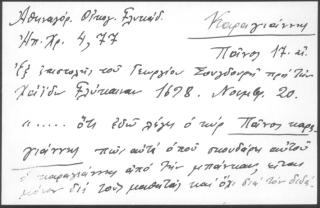 Ἀθηναγόρ. Οἰκογ. Γλυκάδ.
Ἠπ. Χρ. 4, 77
Καραγιάννης
Πάνος 17. αἰ.
Ἐξ ἐπιστολῆς τοῦ Γεωργίου Σουγδουρῆ πρὸς τὸν
1698. Νοεμβρ. 20.
"..... ὅτι ἐδῶ λέγει ὁ κὺρ Πᾶνος καρα-
γιάννης πῶς αὐτὰ ὁποῦ σκουδάρει αὐτοῦ
ὁ καραγιάννης ἀπὸ τὴν μπάνκαν, εἶναι
μόνον διὰ τοὺς μαθητάς καὶ ὄχι διὰ τὸν διδά-